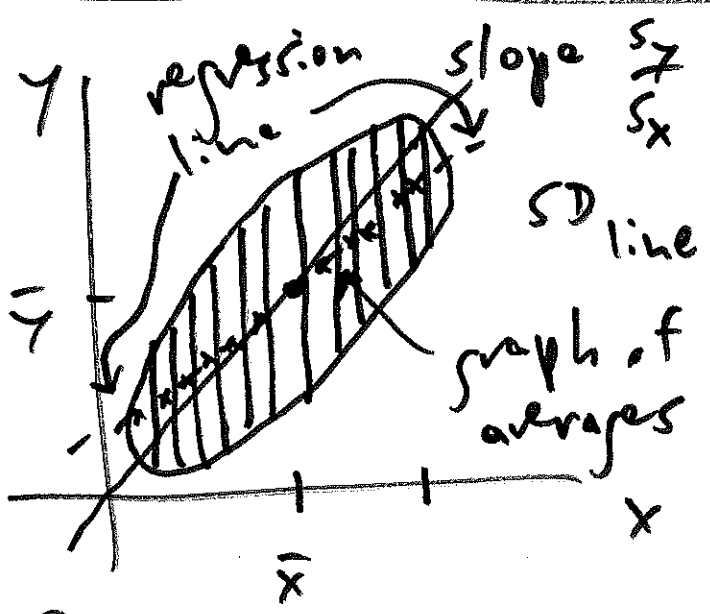 y
regression
line
slope s_y / s_x
SD
line
ȳ
graph of
averages
x
x̄